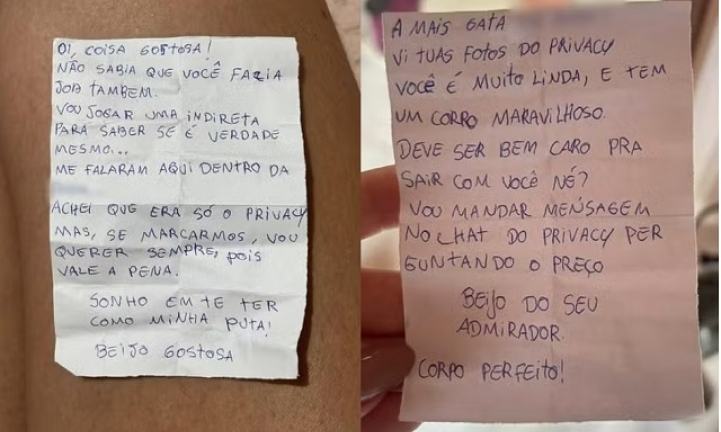 OI, COISA GOSTOSA!
NÃO SABIA QUE VOCÊ FAZIA
JOB TAMBEM.
VOU JOGAR UMA INDIRETA
PARA SABER SE É VERDADE
MESMO...
ME FALARAM AQUI DENTRO DA
ACHEI QUE ERA SÓ O PRIVACY
MAS, SE MARCARMOS, VOU
QUERER SEMPRE, POIS
VALE A PENA.
SONHO EM TE TER
COMO MINHA PUTA!
BEIJO GOSTOSA
A MAIS GATA
VI TUAS FOTOS DO PRIVACY
VOCÊ É MUITO LINDA, E TEM
UM CORPO MARAVILHOSO.
DEVE SER BEM CARO PRA
SAIR COM VOCÊ NÉ?
VOU MANDAR MENSAGEM
NO CHAT DO PRIVACY PER
GUNTANDO O PREÇO
BEIJO DO SEU
ADMIRADOR.
CORPO PERFEITO!